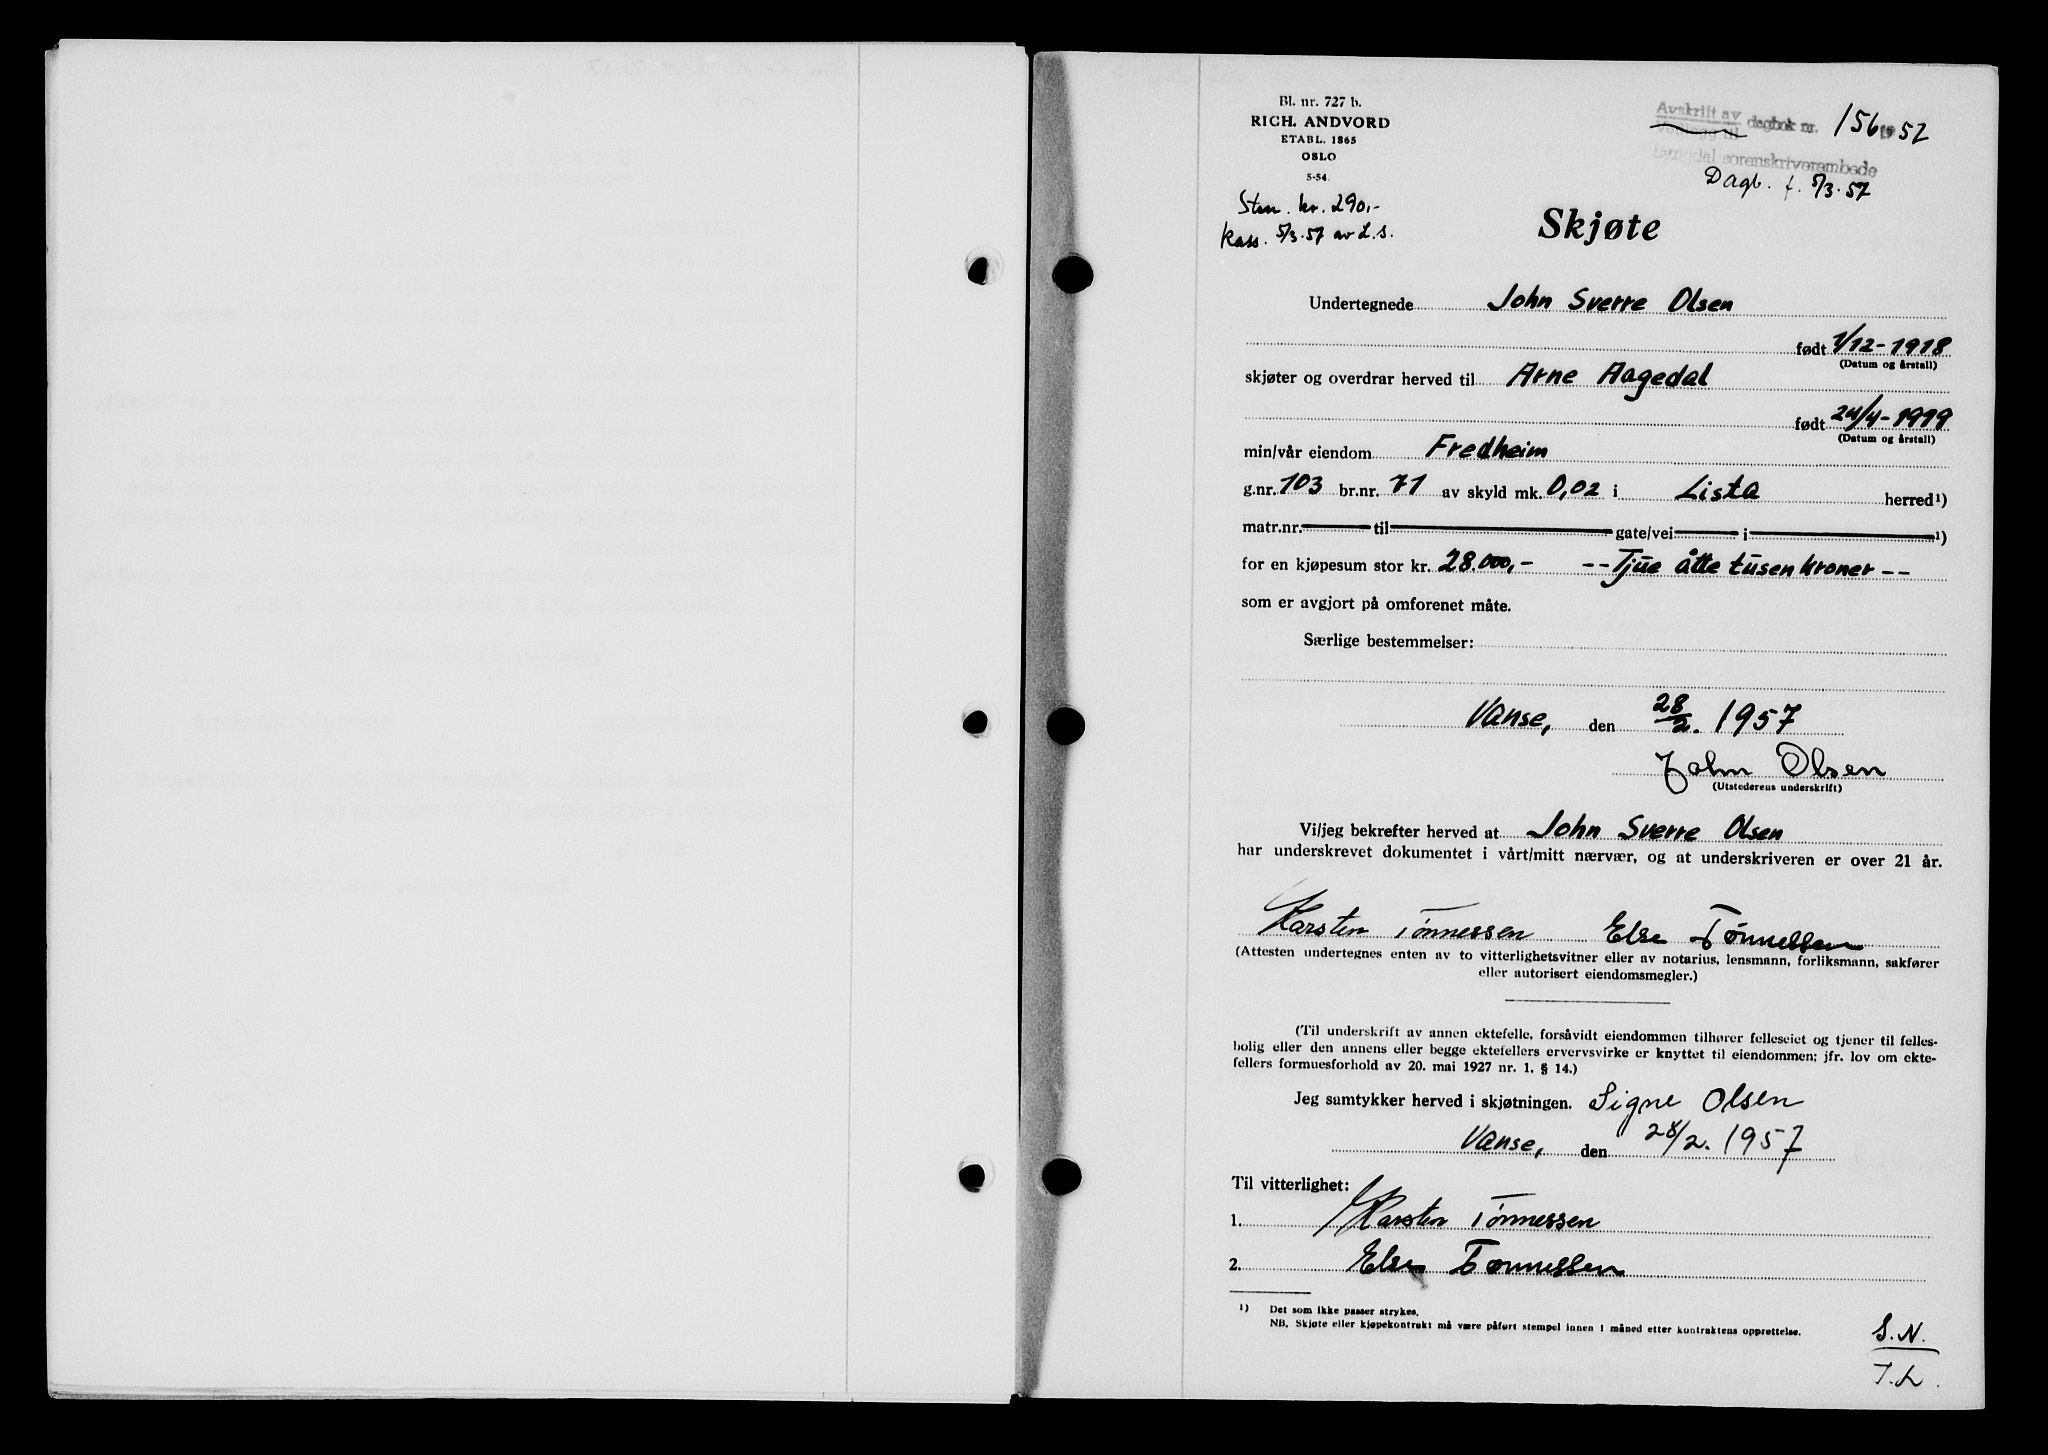 Bl. nr. 727 b.
RICH. ANDVORD
ETABL. 1865
OSLO
5-54.
Avskrift av dagbok nr. 156 1957
Lyngdal sorenskriverembede
Dagb. f. 5/3.57
Stem. kr. 290,-
Kass. 5/3.57 av L.S.
Skjøte
Undertegnede John Sverre Olsen
født 1/12-1918
(Datum og årstall)
skjøter og overdrar herved til Arne Aagedal
født 24/4-1919
(Datum og årstall)
min/vår eiendom Fredheim
g.nr. 103 br.nr. 71 av skyld mk. 0,02 i Lista herred¹)
matr.nr. til gate/vei i ¹)
for en kjøpesum stor kr. 28.000,- -- Tjue åtte tusen kroner --
som er avgjort på omforenet måte.
Særlige bestemmelser:
Vanse, den 28/2. 1957
John Olsen
(Utstederens underskrift)
Vi/jeg bekrefter herved at John Sverre Olsen
har underskrevet dokumentet i vårt/mitt nærvær, og at underskriveren er over 21 år.
Karsten Tönnessen Else Tønnessen
(Attesten undertegnes enten av to vitterlighetsvitner eller av notarius, lensmann, forliksmann, sakfører
eller autorisert eiendomsmegler.)
(Til underskrift av annen ektefelle, forsåvidt eiendommen tilhører felleseiet og tjener til felles-
bolig eller den annens eller begge ektefellers ervervsvirke er knyttet til eiendommen; jfr. lov om ekte-
fellers formuesforhold av 20. mai 1927 nr. 1. § 14.)
Jeg samtykker herved i skjøtningen. Signe Olsen
Vanse, den 28/2. 1957
Til vitterlighet:
1. Karsten Tönnessen
2. Else Tønnessen
¹) Det som ikke passer strykes.
NB. Skjøte eller kjøpekontrakt må være påført stempel innen 1 måned etter kontraktens opprettelse.
S.N.
T.L.